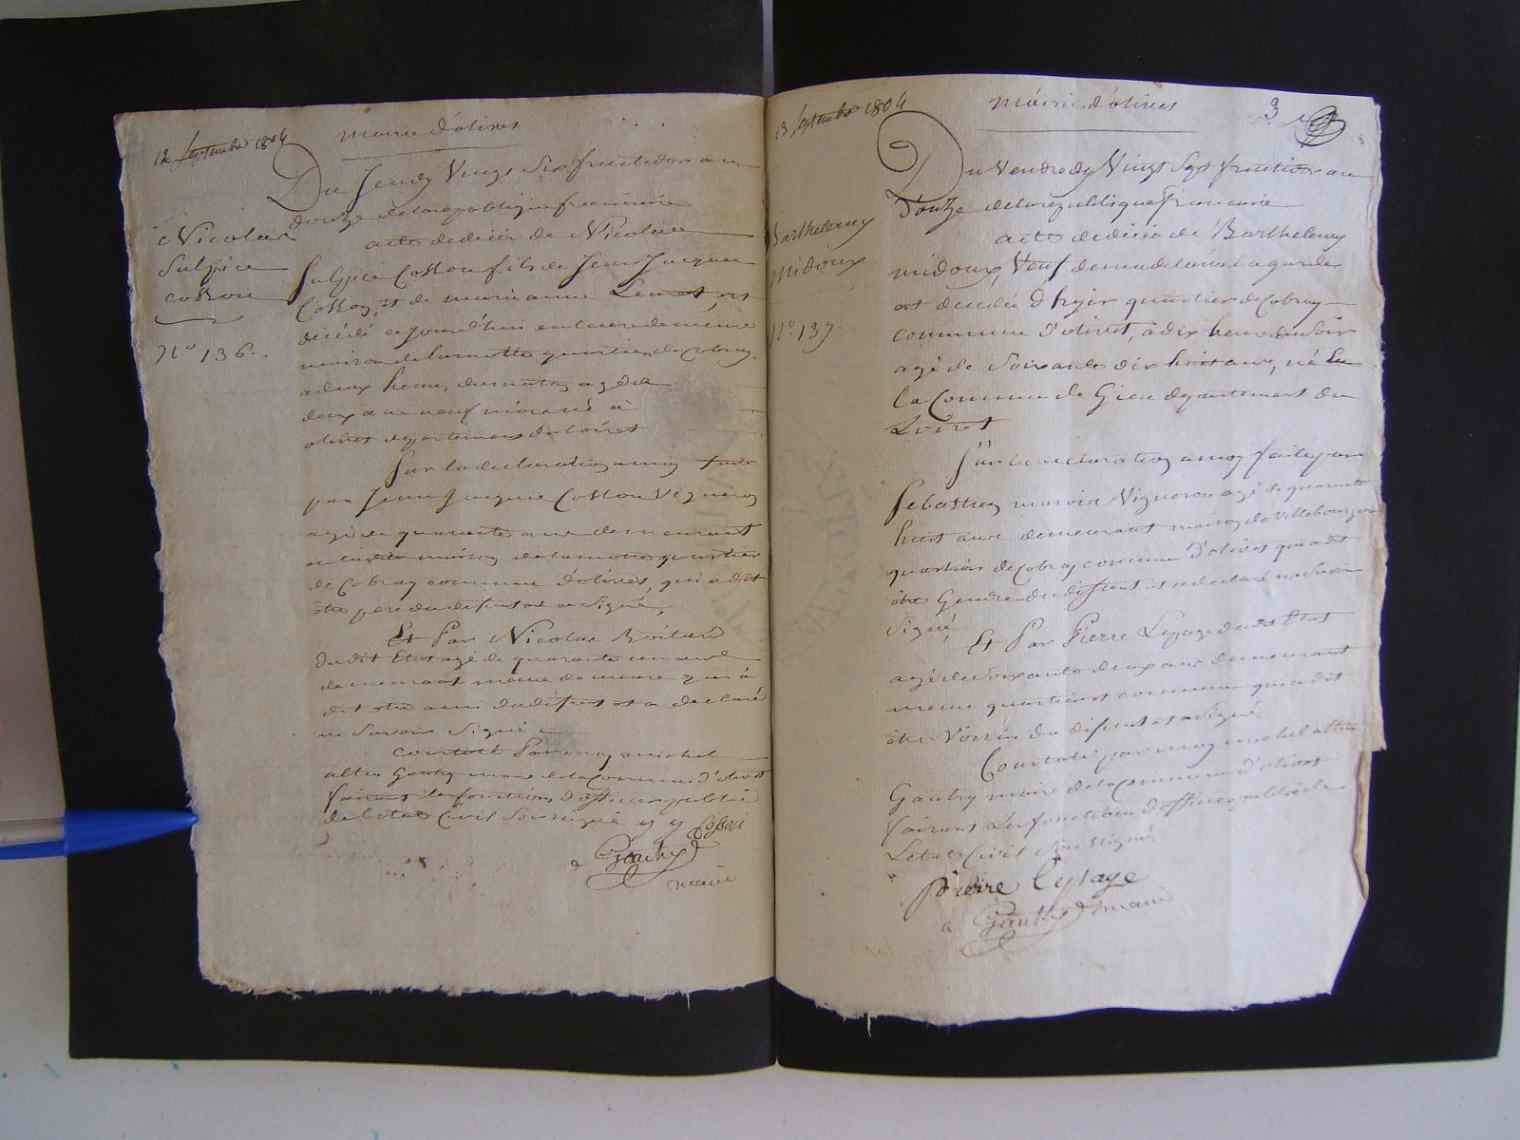 13 Septembre 1804
Mairie d'olivet
Du Jeudy Vingt Six fructidor an
douze de la republique francaise
Nicolas
Sulpice
Cosson
N° 136.
acte de décès de Nicolas
Sulpice Cosson fils de Jean Jacques
Cosson, et de marianne
décédé ajourd'huy en la
maison de la motte quartier de Cobray
a deux heure, du matin agé de
deux ans neuf mois né à
olivet departement du loiret
Sur la declaration a moy faite
par Jean Jacques Cosson Vigneron
agé de quarante ans demeurant
maison de la motte quartier
de Cobray commune d'olivet, qui a dit
être pere du defunt et a signé,
Et Par Nicolas
dudit Etat agé de quarante
demeurant meme qui à
dit etre ami du defunt et a declaré
ne Savoir Signé
Constaté Par moy michel
Gaudry maire de la Commune d'olivet
faisant les fonctions d'officier public
de l'etat Civil Soussigné
Cosson
Gaudry
maire
13 Septembre 1804
Mairie d'olivet
3
Du Vendredy Vingt Sept fructidor an
Douze de la republique francaise
Barthelemy
midoux
N° 137
acte de décès de Barthelemy
midoux, Veuf de
est decedée d'hyer quartier de Cobray
commune d'olivet, a dix heure du soir
agé de Soixante dix huit ans, né
la Commune de Gien departement du
Loiret
Sur la declaration a moy faite par
Sebastien Vigneron agé de quarante
huit ans demeurant maison de Villebourgeon
quartier de Cobray commune d'olivet qui a dit
être Gendre du defunt et a declaré ne Savoir
Signé,
Et Par Pierre Lepage dudit Etat
agé de Soixante deux ans demeurant
meme quartier et commune qui a dit
être Voisin du defunt et a Signé
Constaté par moy michel
Gaudry maire de la Commune d'olivet
faisant les fonctions d'officier public de
L'etat Civil Soussigné
pierre lepage
Gaudry maire